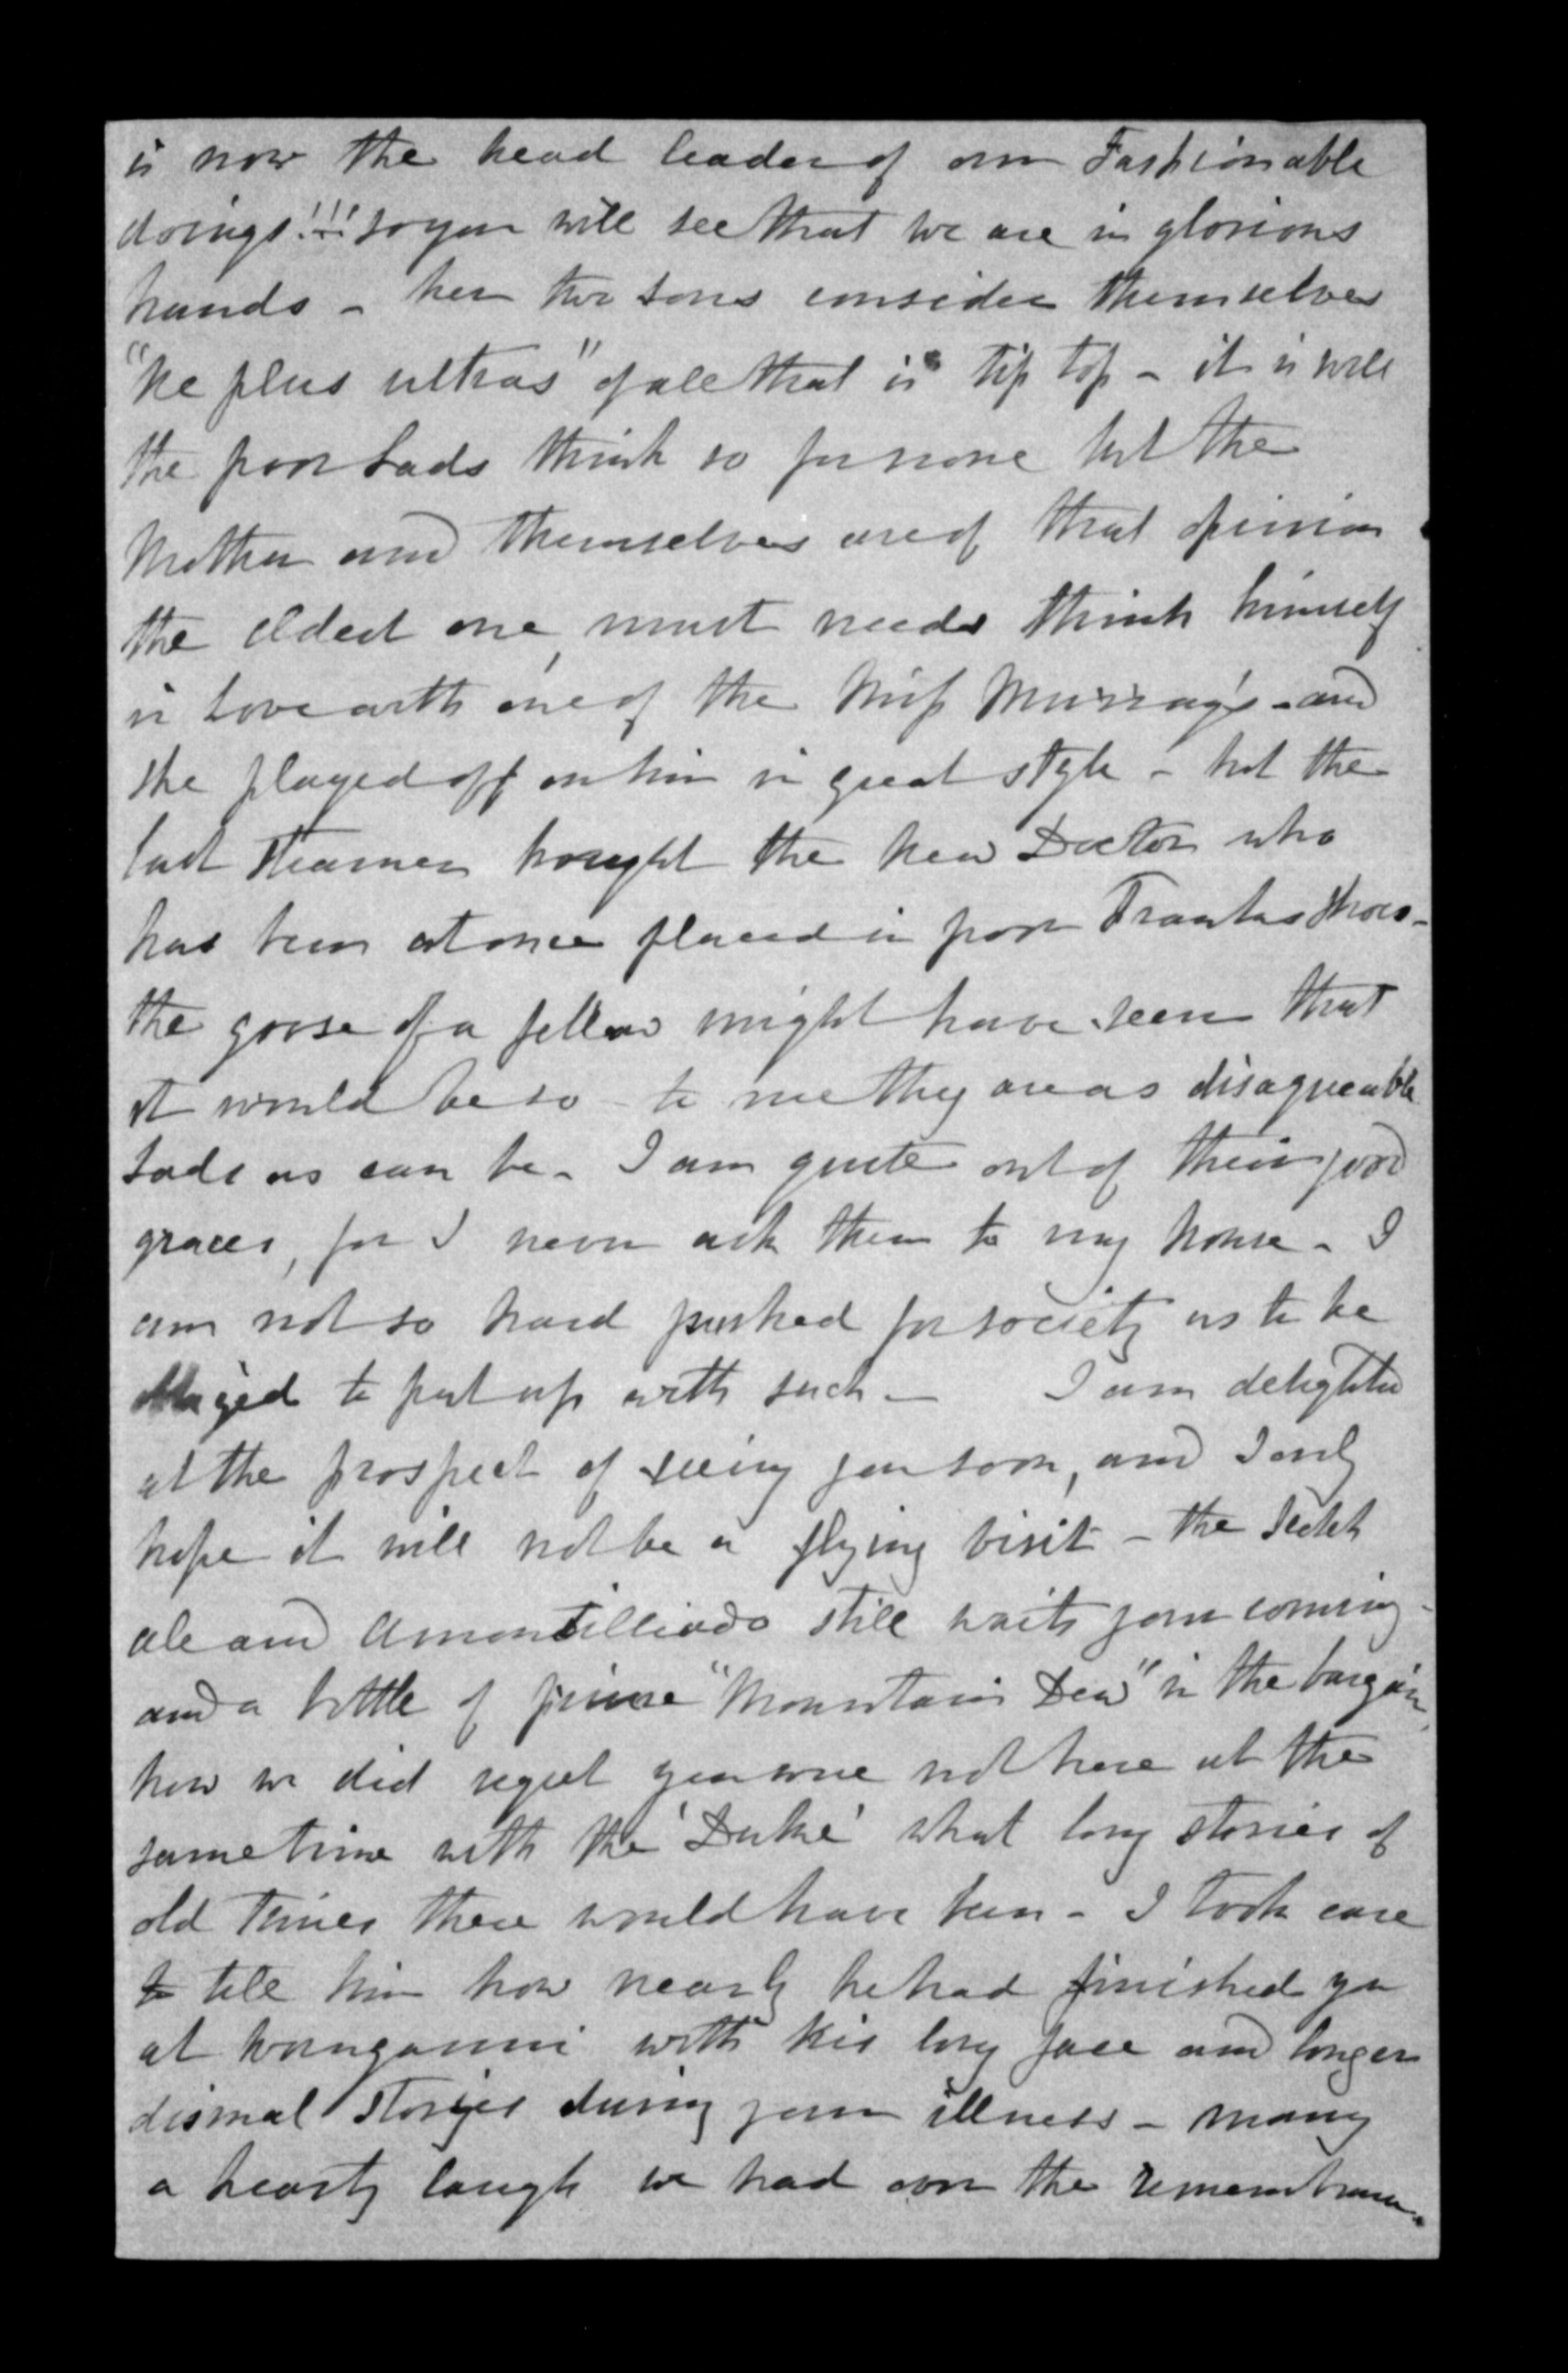 is now the head leader of our Fashionable
doings!!! so you will see that we are in glorious
hands - her two sons consider themselves
"Ne plus ultras" of all that is tip top - it is well
the poor Lads think so for none but the
Mother and themselves are of that opinion
the eldest one, must needs think himself
in love with one of the Miss Murray's - and
she played off on him in great style - but the
last steamer brought the new Doctor who
has been at once placed in poor Franks shoes -
the goose of a fellow might have seen that
it would be so - to me they are as disagreeable
Lads as can be - I am quite out of their good
graces, for I never ask them to my house - I
am not so hard pushed for society as to be
obliged to put up with such - I am delighted
at the prospect of seeing you soon, and I only
hope it will not be a flying visit - the Scotch
ale and Amontilliado still waits your coming -
and a bottle of prime "Mountain Dew" in the bargain,
how we did regret you were not here at the
same time with the 'Duke' what long stories of
old times there would have been - I took care
to tell him how nearly he had finished you
at Wanganui with his long face and longer
dismal stories during your illness - many
a hearty laugh we had over the remembrance.